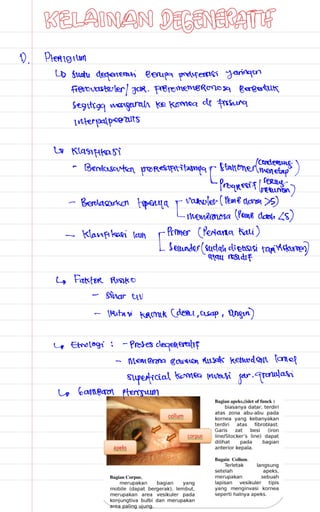 KELAINAN DEGENERATIF
1). Pterigium
↳ Suatu degenerasi berupa proliferasi jaringan
fibrovaskuler / jar. fibromembranosa berbentuk
segitiga mengarah ke kornea di fissura
interpalpebralis
↳ Klasifikasi
- Berdasarkan progresifitasnya Stationer (cenderung menetap)
Progresif
- Berdasarkan tipenya vaskuler (Pemb darah >5)
membranosa (Pemb darah <5)
- Klasifikasi lain Primer (Pertama kali)
Sekunder (sudah dieksisi tapi
atau residif
↳ Faktor Risiko
- Sinar UV
- Iritasi kronik (debu, asap, angin)
↳ Etiologi : - Proses degeneratif
- Membrana bowman rusak
superficial kornea jar. granulasi
↳ Gambaran Pterigium
collum
corpus
apeks
Bagian apeks,(islet of funck )
biasanya datar, terdiri
atas zona abu-abu pada
kornea yang kebanyakan
terdiri atas fibroblast.
Garis zat besi (iron
line/Stocker's line) dapat
dilihat pada bagian
anterior kepala.
Bagain Collum.
Terletak langsung
setelah apeks,
merupakan sebuah
lapisan vesikuler tipis
yang menginvasi kornea
seperti halnya apeks.
Bagian Corpus.
merupakan bagian yang
mobile (dapat bergerak), lembut,
merupakan area vesikuler pada
konjungtiva bulbi dan merupakan
area paling ujung.